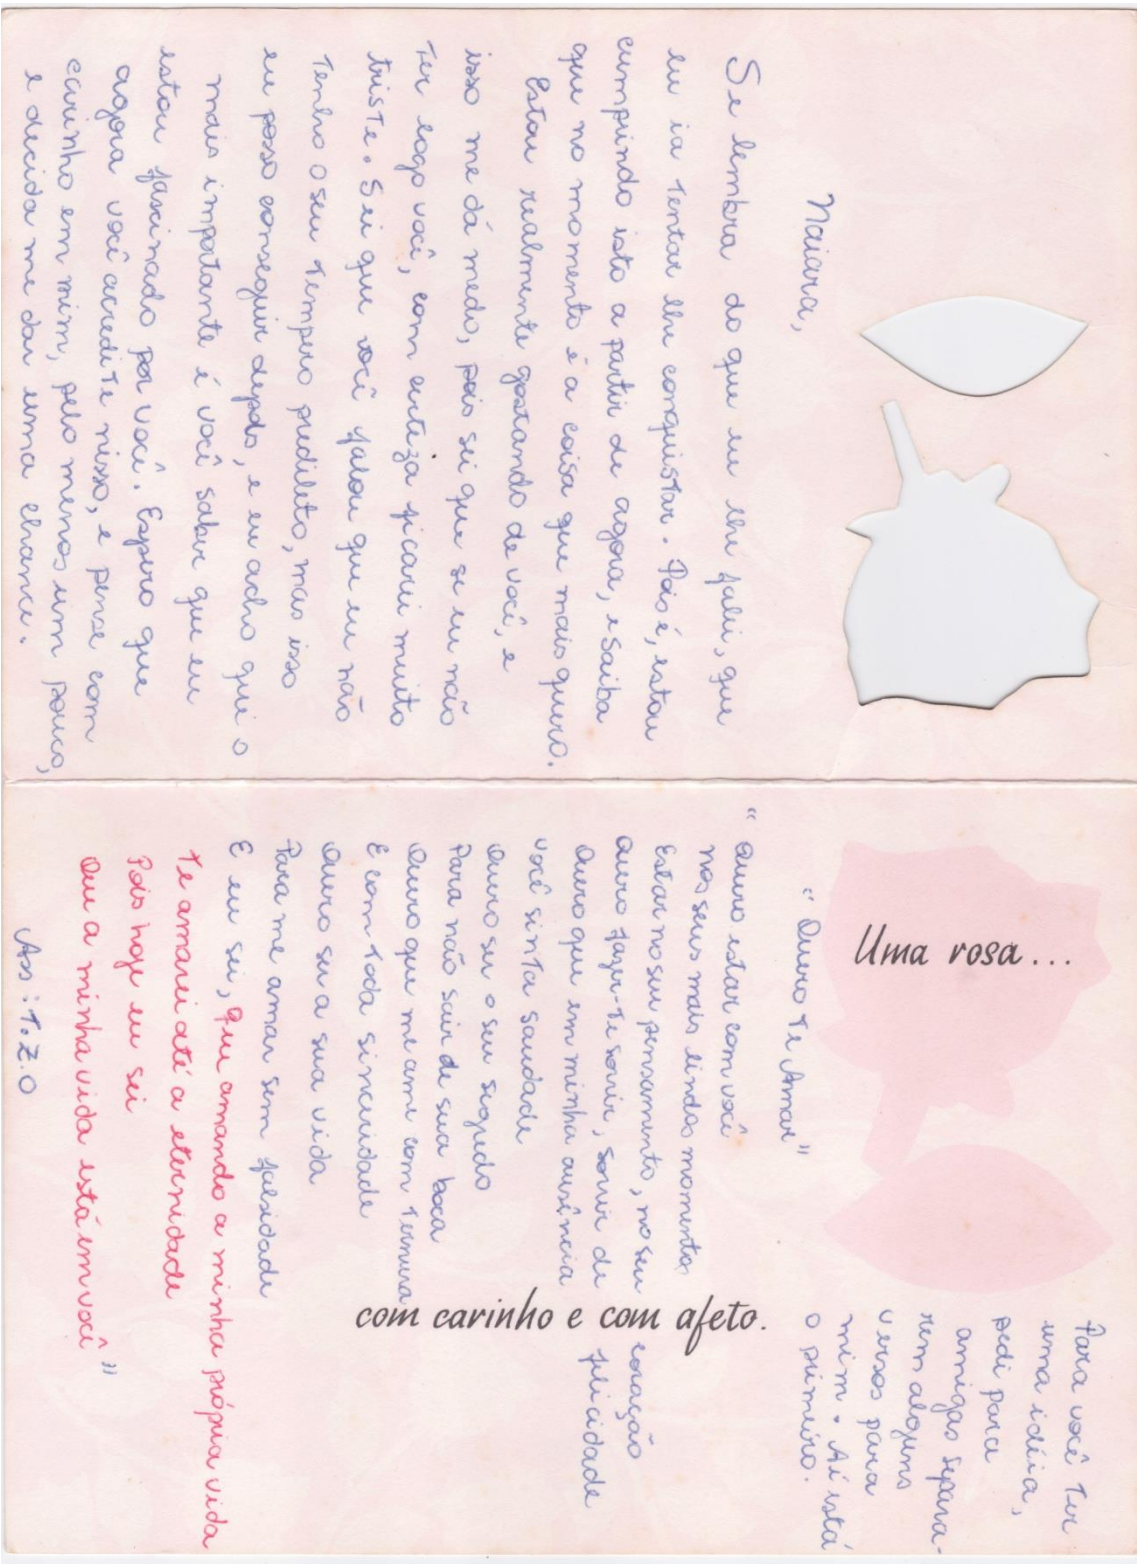 Naiara,
Se lembra do que eu lhe falei, que
eu ia tentar lhe conquistar. Pois é, estou
cumprindo isto a partir de agora, e saiba
que no momento é a coisa que mais quero.
Estou realmente gostando de você, e
isso me dá medo, pois sei que se eu não
ter logo você, com certeza ficarei muito
triste. Sei que você falou que eu não
tenho o seu tempero predileto, mas isso
eu posso conseguir depois, e eu acho que o
mais importante é você saber que eu
estou fascinado por você. Espero que
agora você acredite nisso, e pense com
carinho em mim, pelo menos um pouco,
e decida me dar uma chance.
Uma rosa...
com carinho e com afeto.
Para você ter
uma idéia,
pedi para
amigas separa-
rem alguns
versos para
mim. Aí está
o primeiro.
"Quero Te Amar"
"Quero estar com você
nos seus mais lindos momentos
Estar no seu pensamento, no seu coração
Quero fazer-te sorrir, sorrir de felicidade
Quero que em minha ausência
você sinta saudade
Quero ser o seu segredo
Para não sair de sua boca
Quero que me ame com ternura
E com toda sinceridade
Quero ser a sua vida
Para me amar sem falsidade
E eu sei, que amando a minha própria vida
Te amarei até a eternidade
Pois hoje eu sei
Que a minha vida está em você"
Ass: T.Z.O